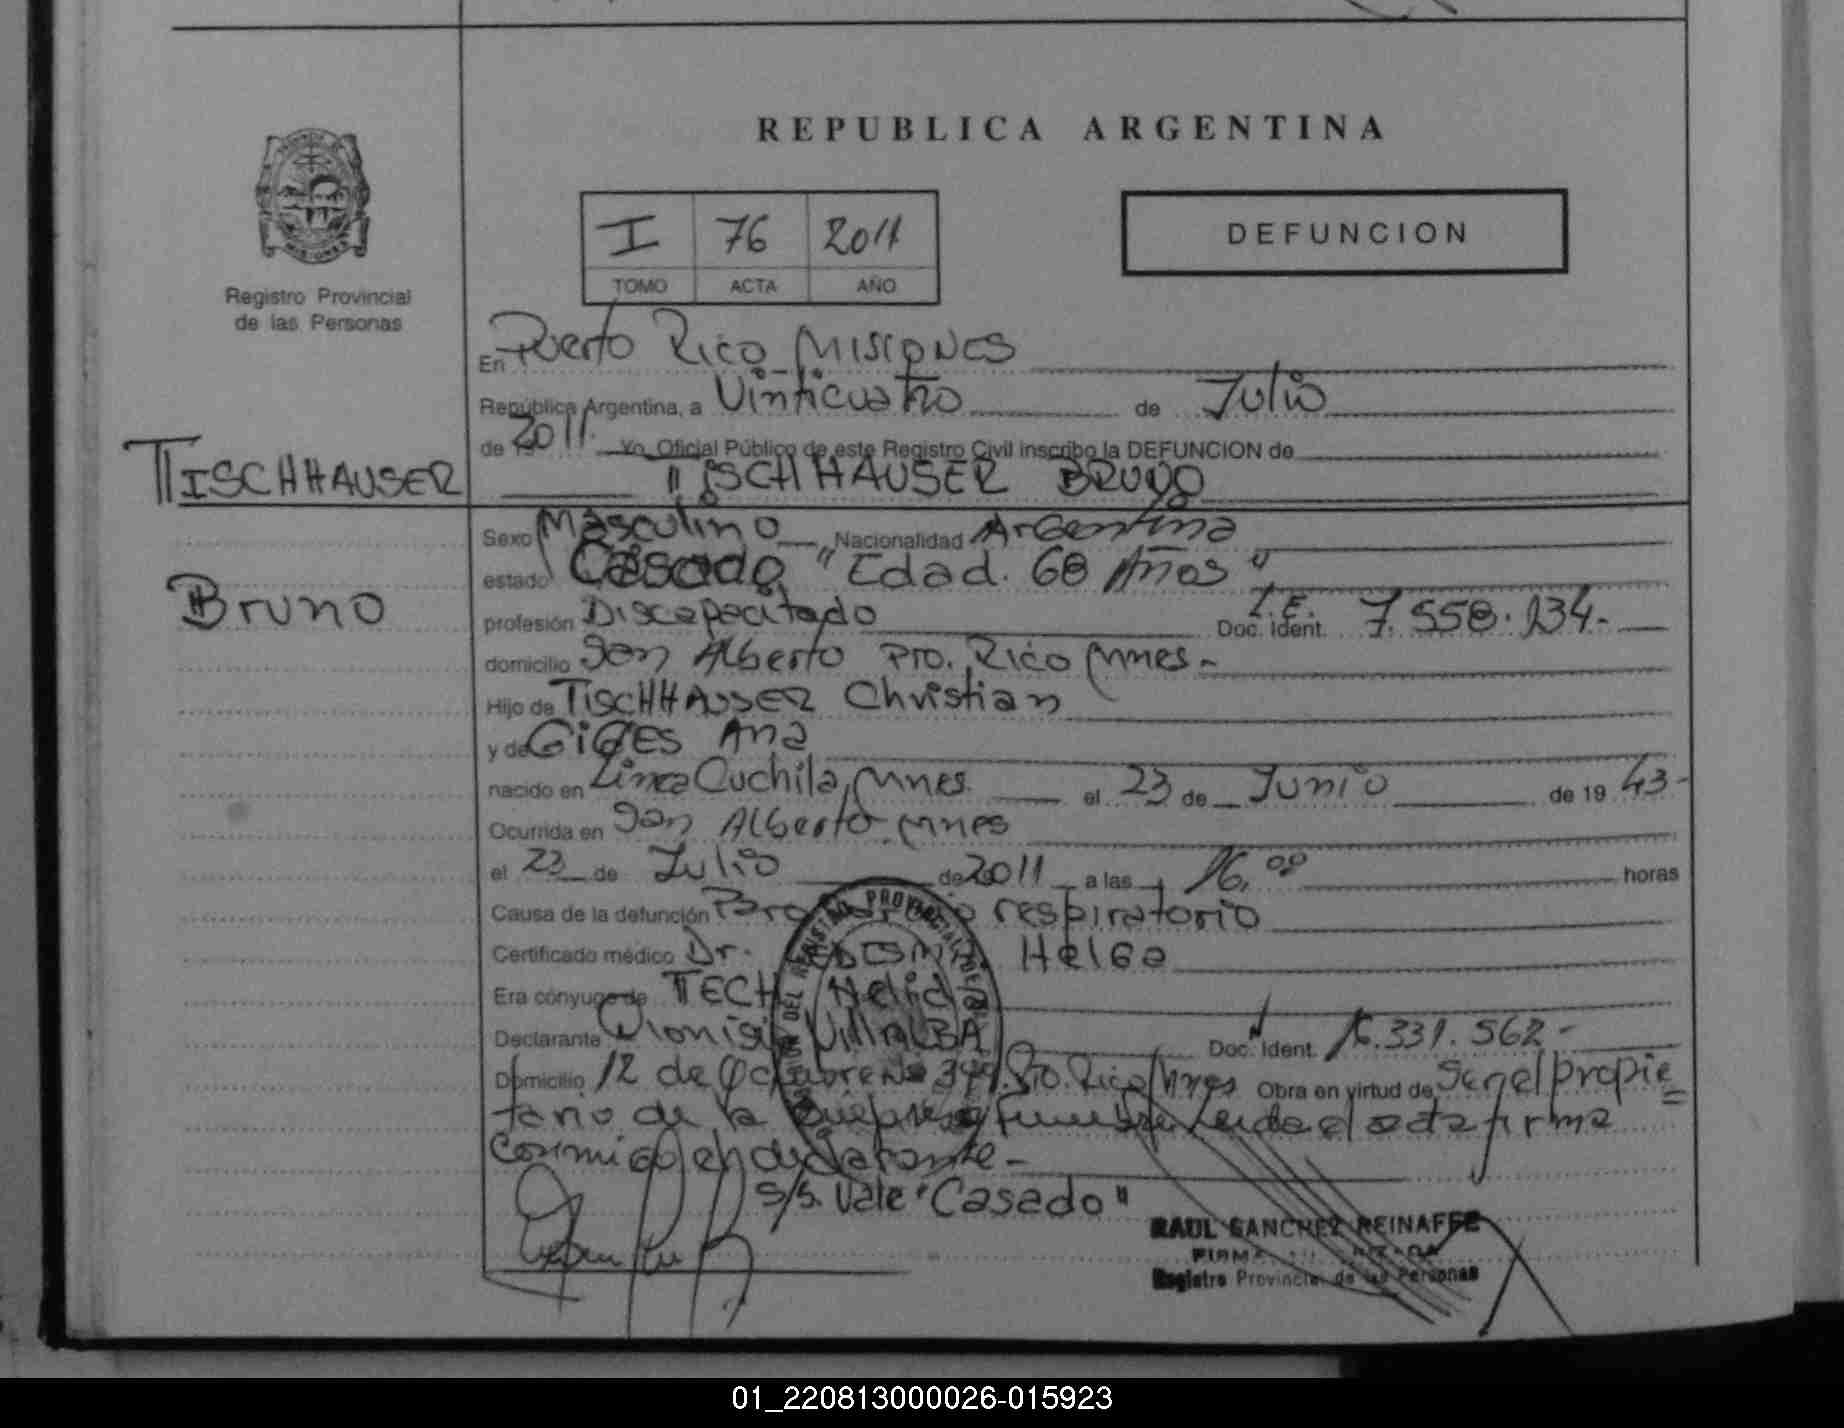 REPUBLICA ARGENTINA
I 76 2011
TOMO ACTA AÑO
DEFUNCION
MISIONES
Registro Provincial
de las Personas
TISCHHAUSER
Bruno
En Puerto Rico Misiones
República Argentina, a Vinticuatro de Julio
de 2011. Yo, Oficial Público de este Registro Civil inscribo la DEFUNCION de
TISCHHAUSER BRUNO
Sexo Masculino Nacionalidad Argentina
estado Casado "Edad. 68 Años"
profesión Discapacitado Doc. Ident. L.E. 7.558.134.-
domicilio San Alberto Pto. Rico Mnes-
Hijo de TISCHHAUSER Christian
y de Ana
nacido en Linea Cuchila, Mnes. el 23 de Junio de 19 43-
Ocurrida en San Alberto. Mnes
el 23 de Julio de 2011 a las 16,00 horas
Causa de la defunción Paro respiratorio
Certificado médico Dr. Helga
Era cónyuge de TECH Nelida
Declarante Dionisio VillALBA Doc. Ident. 16.331.562-
Domicilio 12 de Octubre Nº 349. Pto. Rico Mnes Obra en virtud de Ser el propie=
tario de la Empresa Funebre. Leida el acta firma
Conmigo el declarante-
s/s. Vale "Casado"
RAUL SANCHEZ REINAFFE
FIRMA
Registro Provincial de las Personas
01_220813000026-015923